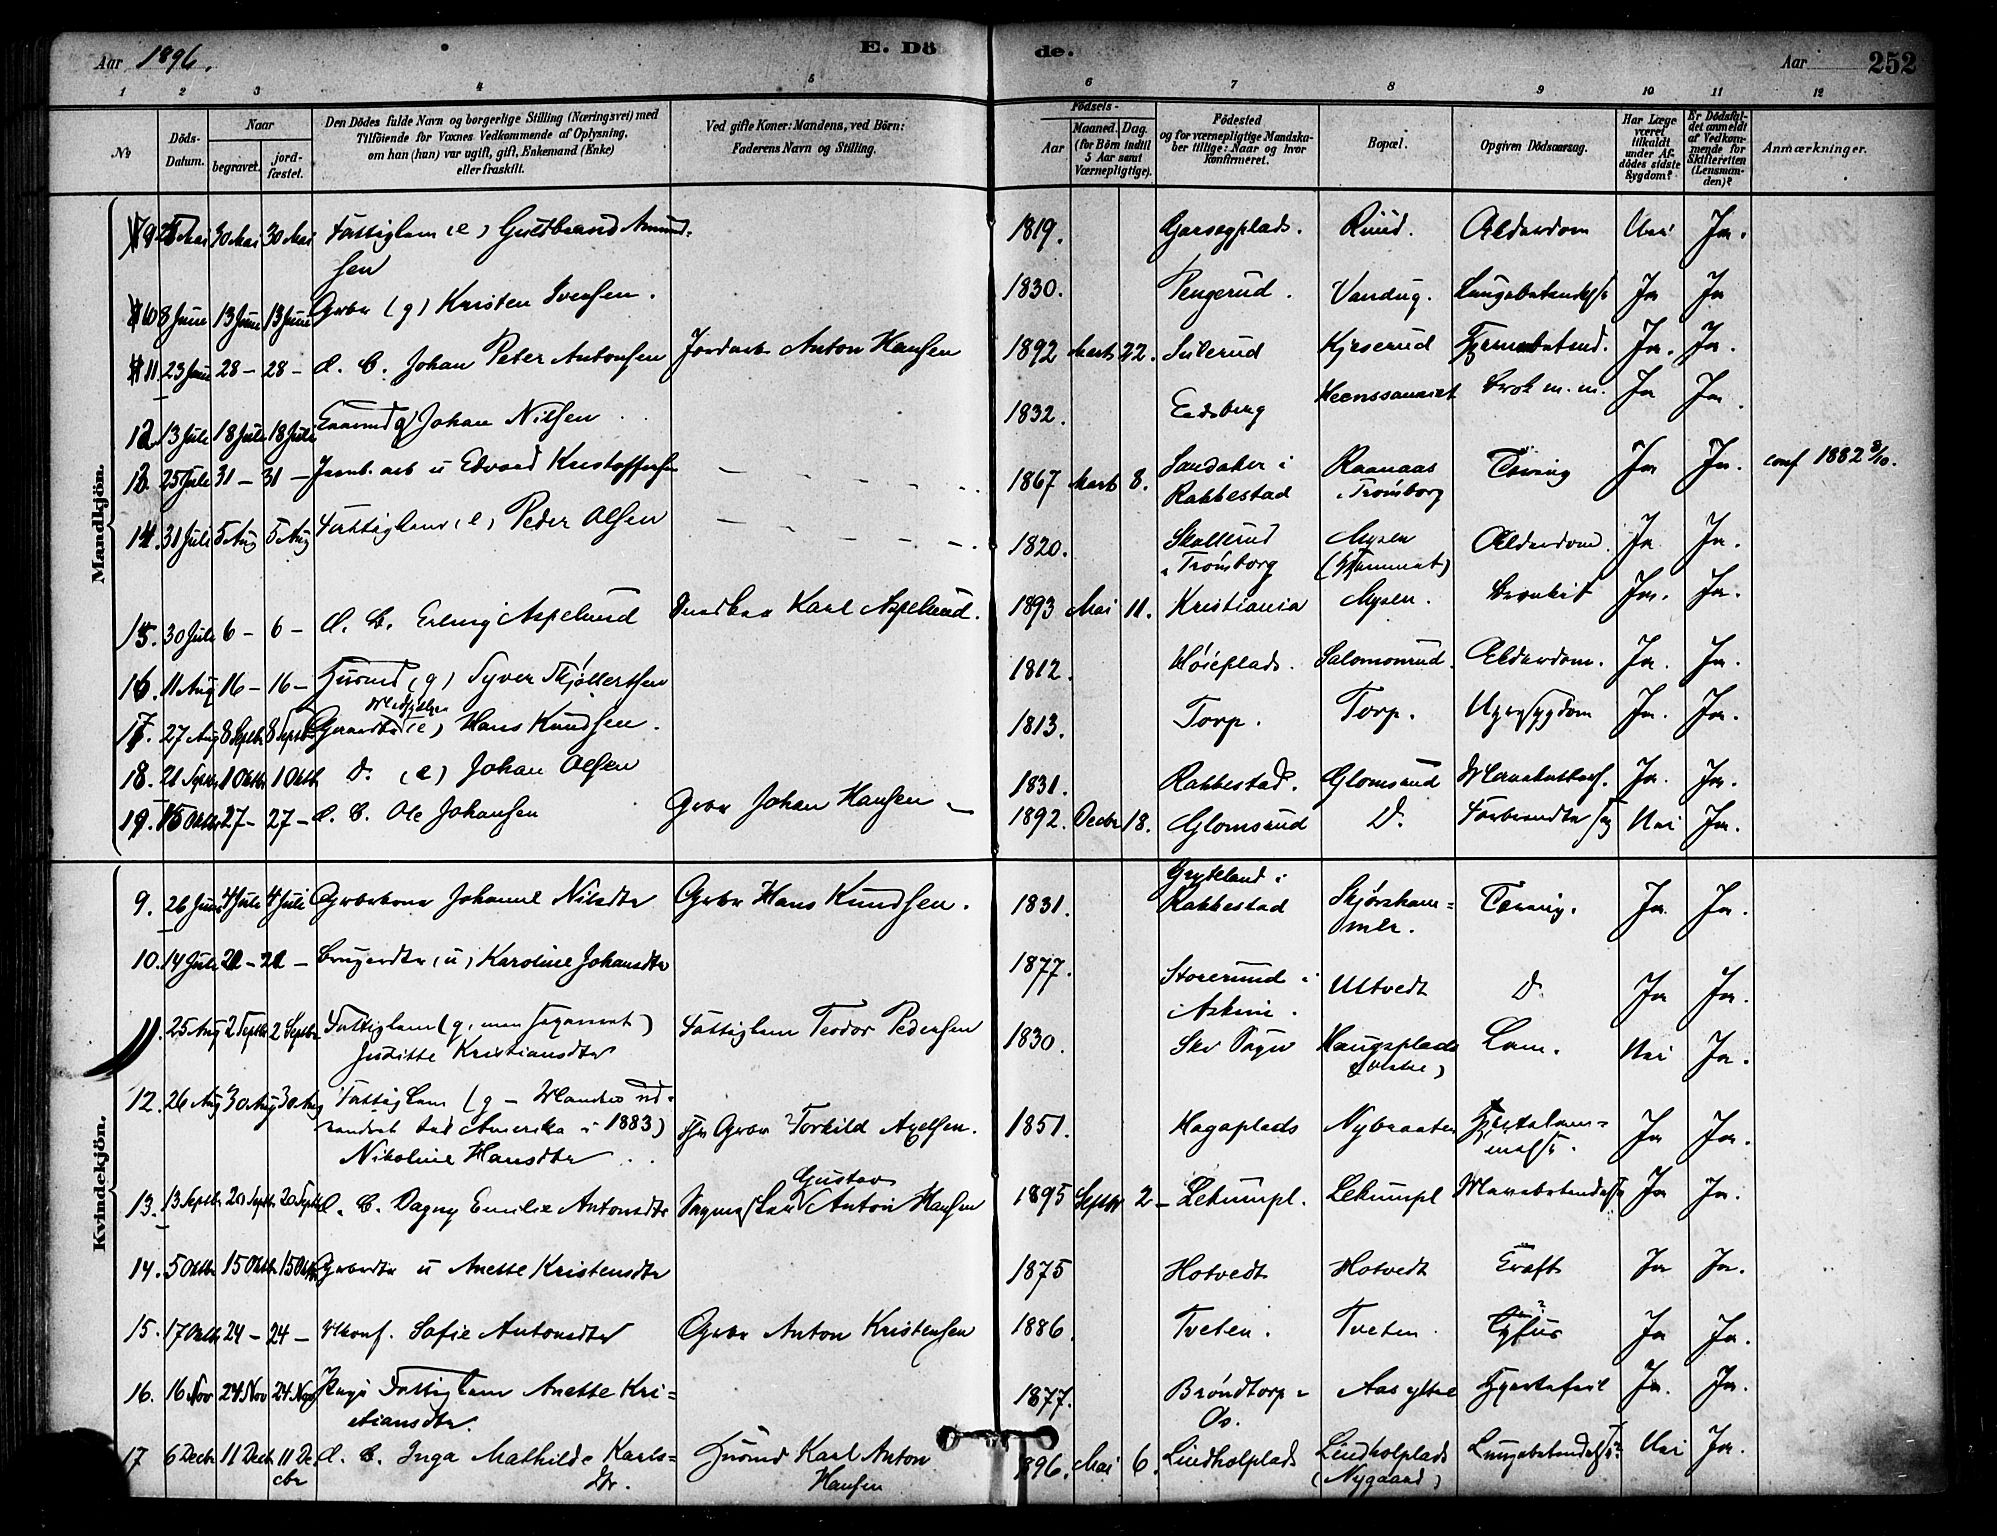 Aar 1896.
E. Dö de.
Aar 252
1 2 3 4 5 6 7 8 9 10 11 12
No
Döds-Datum.
Naar
begravet.
jord-fæstet.
Den Dödes fulde Navn og borgerlige Stilling (Næringsvei) med
Tilföiende for Voxnes Vedkommende af Oplysning,
om han (hun) var ugift, gift, Enkemand (Enke)
eller fraskilt.
Ved gifte Koner: Mandens, ved Börn:
Faderens Navn og Stilling.
Födsels-
Aar
Maaned. Dag.
(for Börn indtil
5 Aar samt
Værnepligtige).
Födested
og for værnepligtige Mandska-
ber tillige: Naar og hvor
konfirmeret.
Bopæl.
Opgiven Dödsaarsag.
Har Læge
været
tilkaldt
under Af-
dödes sidste
Sygdom?
Er Dödsfal-
det anmeldt
af Vedkom-
mende for
Skifteretten
(Lensman-
den)?
Anmærkninger.
Mandkjön.
9 Mai 30 Mai 30 Mai Fattiglem (e) Guldbrand Amund- 1819. Ruud. Alderdom Nei Ja.
sen
10 8 Juni 13 Juni 13 Juni Grbr (g) Kristen Iversen. 1830. Pengerud. Vandug. Ja Ja
11 23 Juni 28 – 28 – d. B. Johan Peter Antonsen Jordarb. Anton Hansen 1892 Marts 22. Kjeserud Ja. Ja.
12 13 Juli 18 Juli 18 Juli g Johan Nilsen 1832. Eidsberg Brok m. m. Ja Ja.
13. 25 Juli 31 – 31 – Jernb. arb u Edvard Kristoffersen 1867 Marts 8. Sandaker i Rakkestad Raanaas i Trømborg Tæring Ja Ja. conf 1882 8/10.
14. 31 Juli 5 Aug 5 Aug Fattiglem (e) Peder Olsen 1820. Skallerud i Trømborg Mysen Alderdom. Ja Ja.
15. 30 Juli 6 – 6 – d. B. Erling Aspelund Karl Aspelund. 1893 Mai 11. Kristiania Mysen. Bronkit Ja. Ja.
16. 11 Aug 16 – 16 – Husmd (g) Syver Skjøllertsen 1812. Høieplads. Salomonrud. Alderdom. Ja. Ja.
17. 27 Aug 8 Septbr 8 Septbr (e) Hans Knudsen. 1813. Torp. Torp. Ja. Ja.
18. 21 Septbr 1 Oktbr 1 Oktb D. (e) Johan Olsen 1831. Rakkestad. Glomsrud Ja. Ja.
19. 15 Oktbr 27 – 27 – d. B. Ole Johansen Grbr Johan Hansen 1892. Decbr 18. Glomsrud D. Forbrændte sig Nei Ja.
Kvindekjön.
9. 26 Juni 4 Juli 4 Juli Grbrkone Johanne Nilsdtr Grbr Hans Knudsen. 1831. Grydeland i Rakkestad Skjørsham=mer. Tæring. Ja. Ja.
10. 14 Juli 21 – 21 – Brugerdtr (u) Karoline Johansdtr 1877. i Askim. Ultvedt D. Ja Ja.
11. 25 Aug 2 Septbr 2 Septbr Fattiglem (g. men separeret) Fattiglem Teodor Pedersen 1830. Haugsplads Lam. Nei Ja.
Juditte Kristiansdtr
12. 26 Aug 30 Aug 30 Aug Fattiglem (g – Manden ud=
vandret til Amerika i 1883) Grbr Torkild Axelsen. 1851. Hagaplads Nybraaten Ja Ja.
Nikoline Hansdtr
13. 13 Septbr 20 Septbr 20 Septbr d. B. Dagny Emilie Antonsdtr Gustav Anton Hansen 1895 Septbr 2 – Lekumpl. Lekumpl Ja Ja.
14. 5 Oktbr 15 Oktbr 15 Oktbr Grbrdtr u Anette Kristensdtr 1875 Hotvedt Hotvedt Kræft Ja Ja.
15. 17 Oktbr 24 – 24 – Ukonf. Sofie Antonsdtr Grbr Anton Kristensen 1886. Tveten. Tveten. Tyfus ? Ja Ja.
16. 16 Nov 24 Nov 24 Nov Pige Fattiglem Anette Kri= 1877. Brøndtorp Aas ytre Hjertefeil Ja. Ja.
stiansdtr.
17 6 Decbr 11 Decb 11 De d. B. Inga Mathilde Karls= Husmd Karl Anton 1896. Mai 6. Lindholplads Lindholplads Lungebetændelse? Nei Ja.
cbr dtr. Hansen (Nygaard)